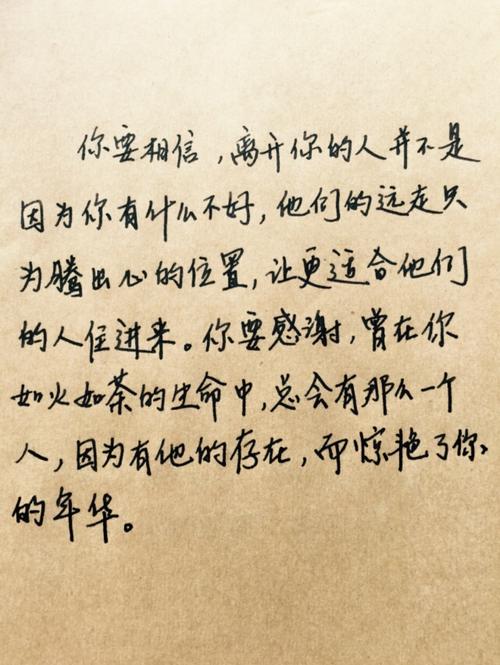 你要相信，离开你的人并不是
因为你有什么不好，他们的远走只
为腾出心的位置，让更适合他们
的人住进来。你要感谢，曾在你
如火如荼的生命中，总会有那么一个
人，因为有他的存在，而惊艳了你
的年华。